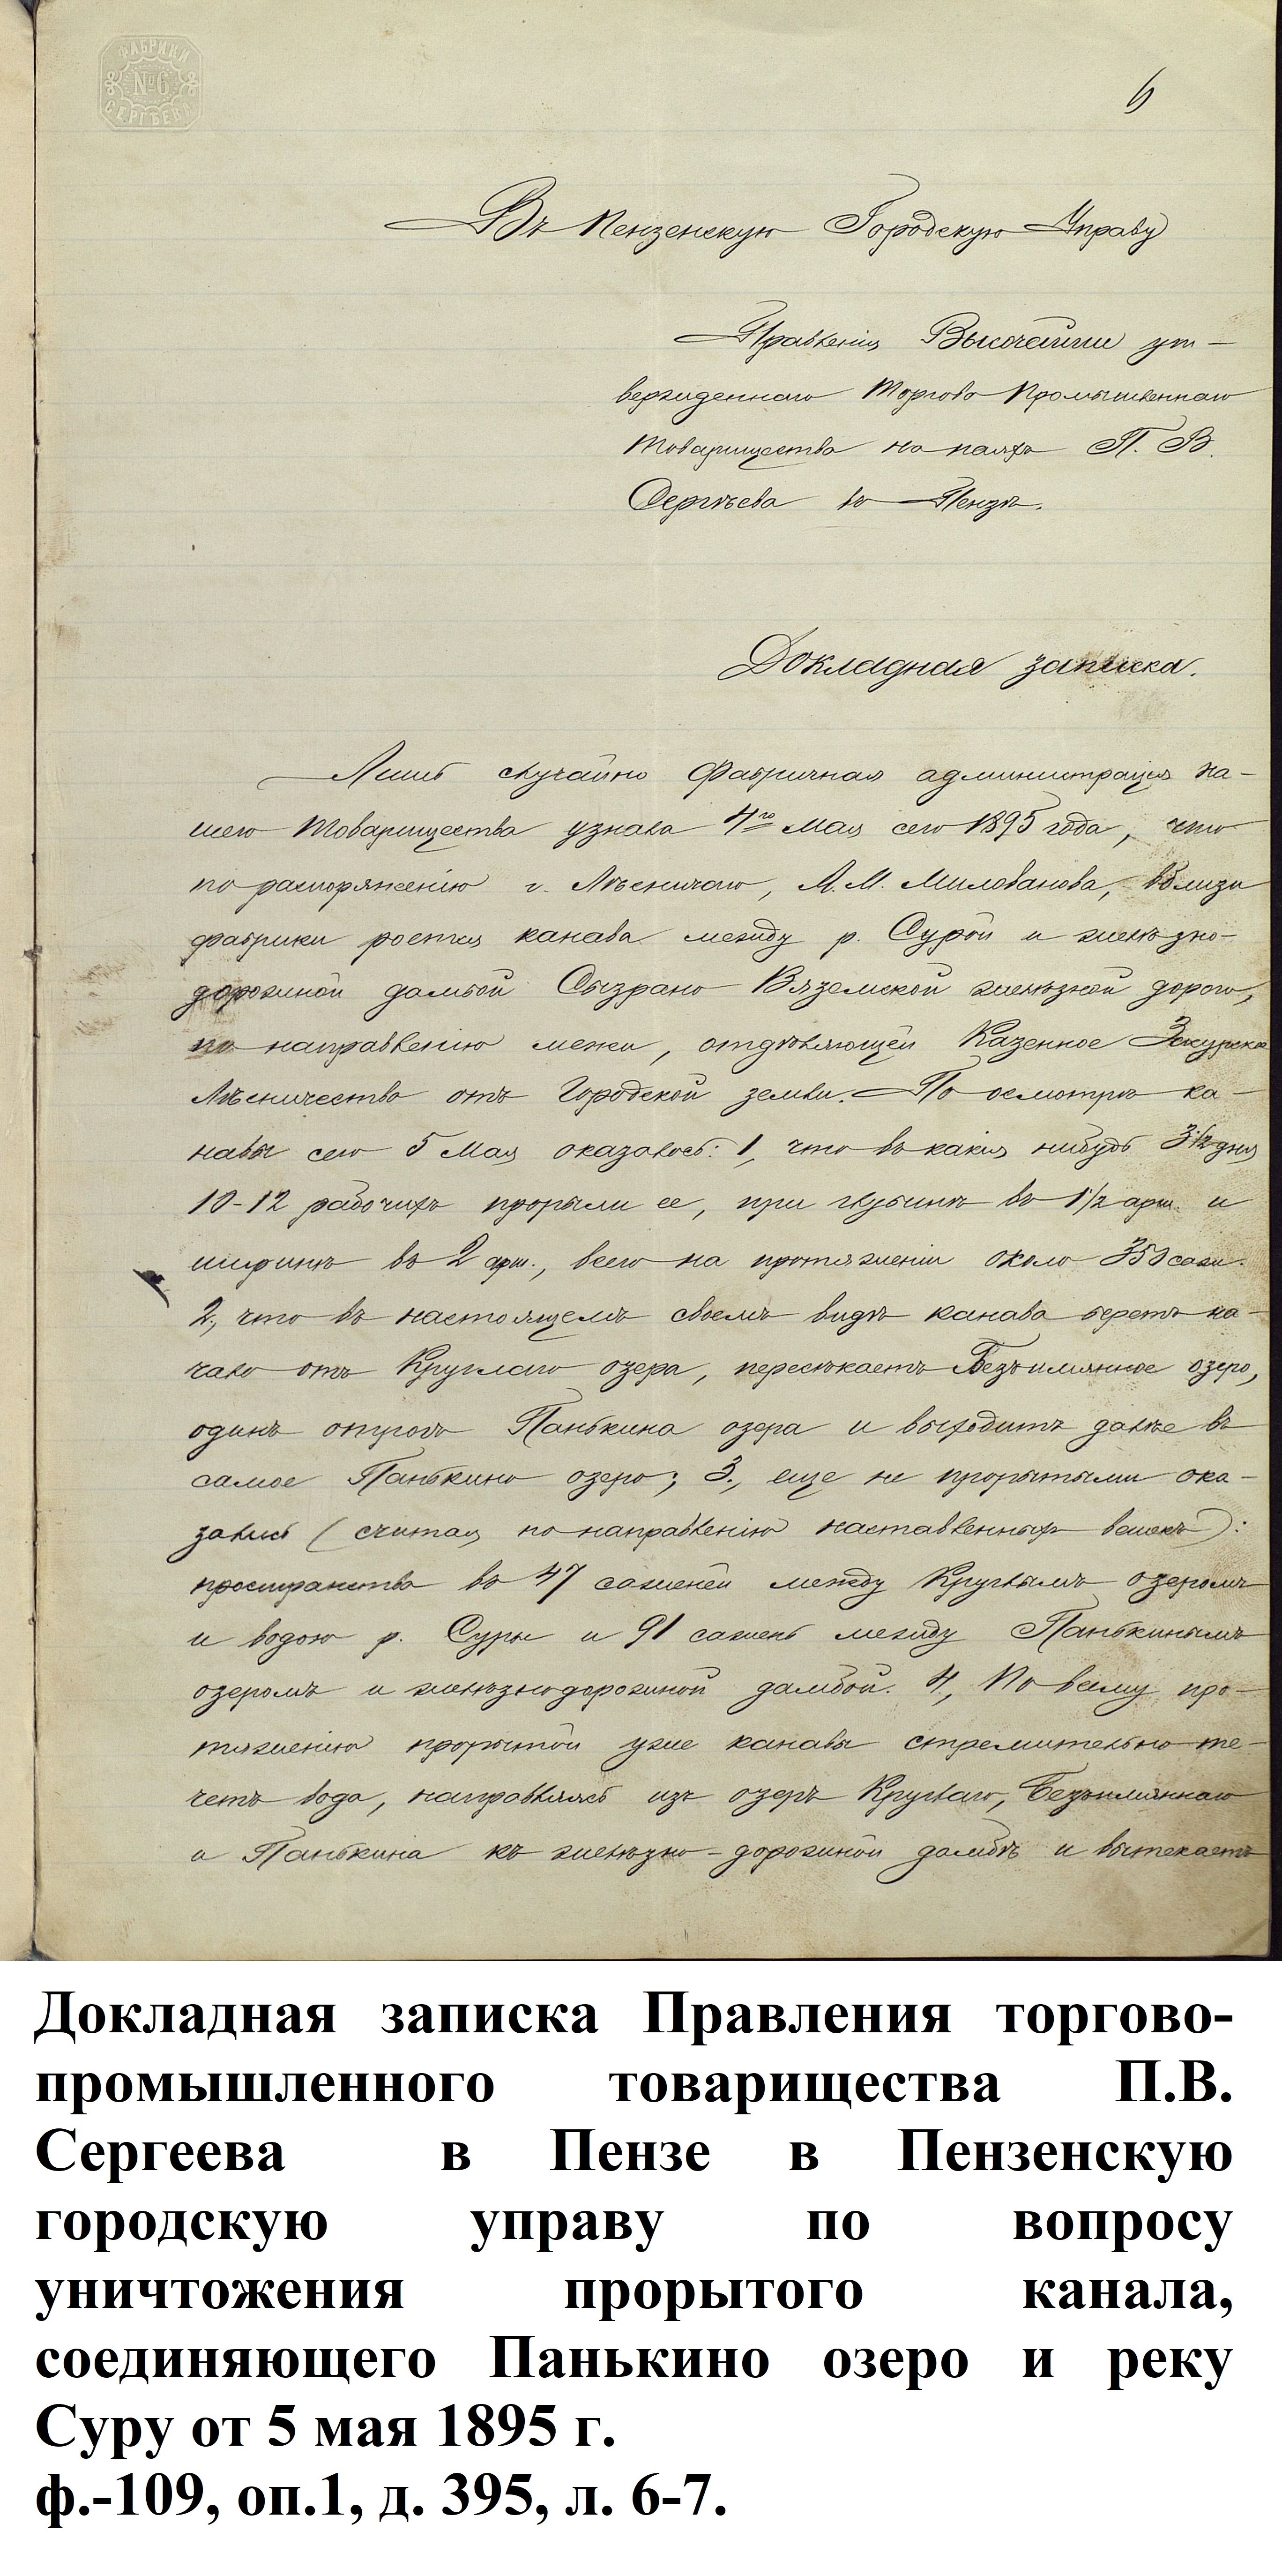 ФАБРИКИ
№6
СЕРГѢЕВА
6
Въ Пензенскую Городскую Управу
Правленія Высочайше ут-
вержденнаго Торгово Промышленнаго
Товарищества на паяхъ П. В.
Сергѣева въ Пензѣ.
Докладная записка.
Лишь случайно Фабричная администрація на-
шего Товарищества узнала 4го Мая сего 1895 года, что
по распоряженію г. Лѣсничаго, А. М. Милованова, вблизи
фабрики роется канава между р. Сурой и желѣзно-
дорожной дамбой Сызрано Вяземской желѣзной дороги,
по направленію межи, отдѣляющей Казенное
Лѣсничество отъ Городской земли. По осмотрѣ ка-
навы сего 5 Мая оказалось: 1, что въ какія нибудь 3 1/2 дня
10-12 рабочихъ прорыли ее, при глубинѣ въ 1 1/2 арш. и
ширинѣ въ 2 арш., всего на протяженіи около 350 саж.
2, что въ настоящемъ своемъ видѣ канава беретъ на-
чало отъ Круглаго озера, пересѣкаетъ Безъимянное озеро,
одинъ отрогъ Панькина озера и выходитъ далѣе въ
самое Панькино озеро; 3, еще не прорытыми ока-
зались (считая по направленію наставленныхъ вешекъ):
пространства въ 47 саженей между Круглымъ озеромъ
и водою р. Суры и 91 сажень между Панькинымъ
озеромъ и желѣзнодорожной дамбой. 4, По всему про-
тяженію прорытой уже канавы стремительно те-
четъ вода, направляясь изъ озеръ Круглаго, Безъимяннаго
и Панькина къ желѣзно-дорожной дамбѣ и вытекаетъ
Докладная записка Правления торгово-
промышленного товарищества П.В.
Сергеева в Пензе в Пензенскую
городскую управу по вопросу
уничтожения прорытого канала,
соединяющего Панькино озеро и реку
Суру от 5 мая 1895 г.
ф.-109, оп.1, д. 395, л. 6-7.